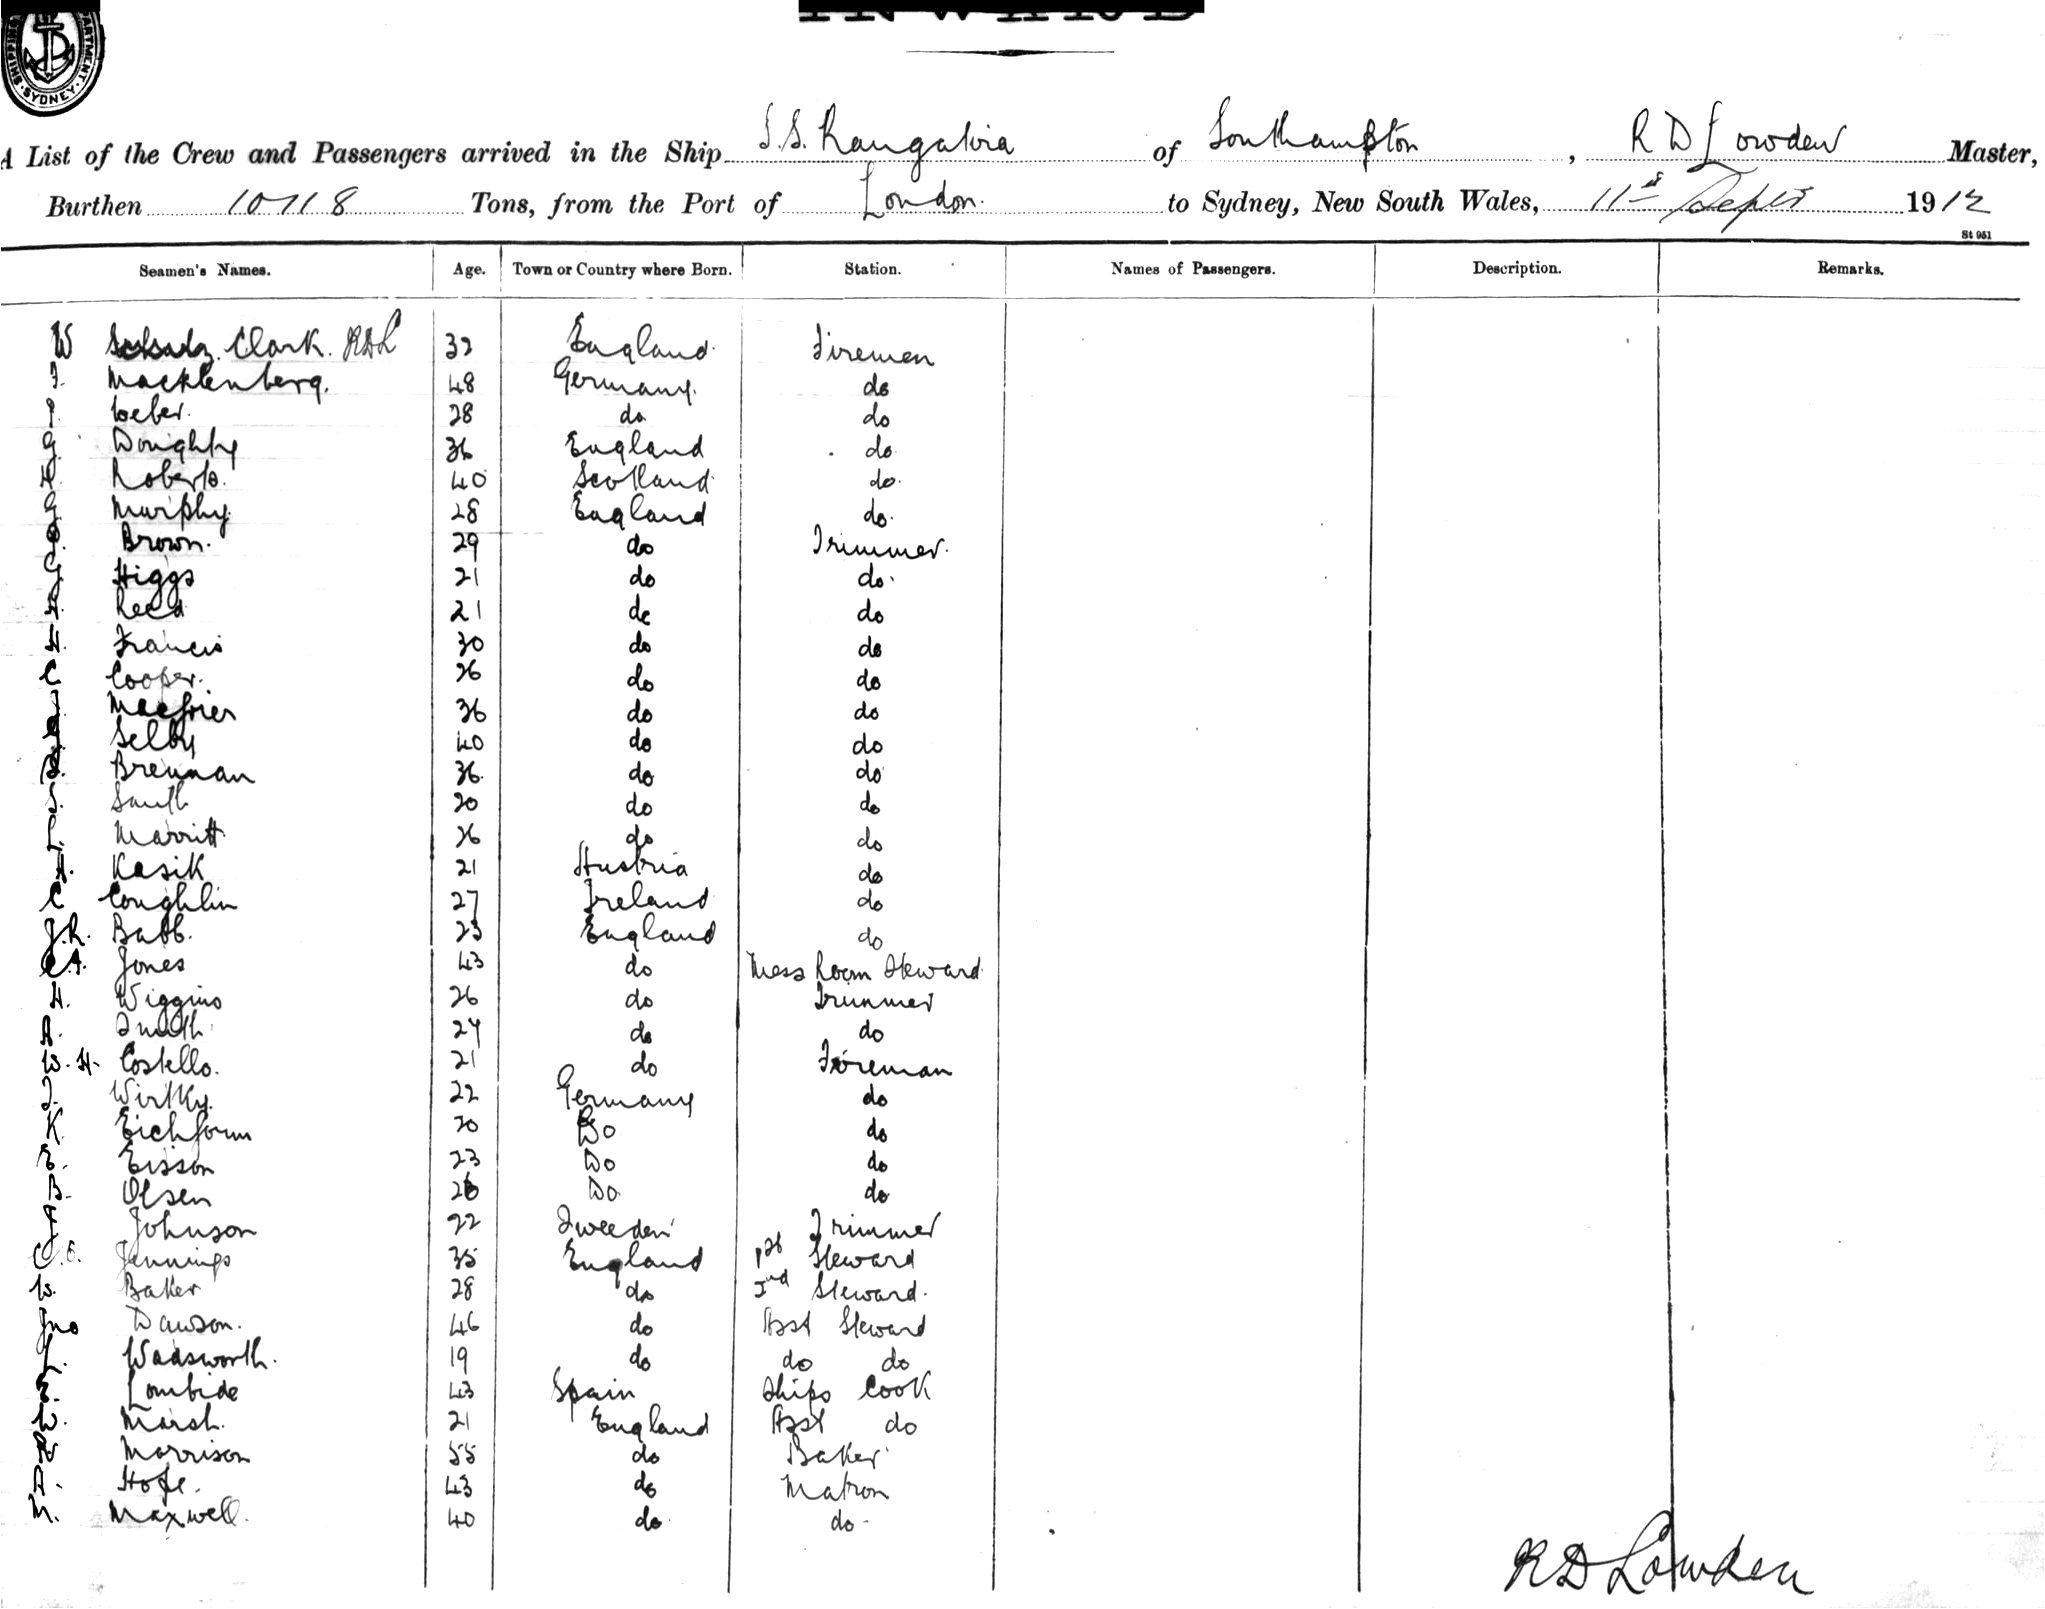 SYDNEY
A List of the Crew and Passengers arrived in the Ship S.S. Rangatira of Southampton, R D Lowden Master,
Burthen 10118 Tons, from the Port of London. to Sydney, New South Wales, 11th Sept 1912
St 951
Seamen's Names. Age. Town or Country where Born. Station. Names of Passengers. Description. Remarks.
W Clark. RDL 32 England Firemen
Macklenberg. 48 Germany. do
Weber. 28 do do
Doughty 36 England do
Roberts. 40 Scotland do
Murphy. 28 England do
Brown. 29 do Trimmer.
Higgs 21 do do
Reed 21 do do
Francis 30 do do
C Cooper. 36 do do
36 do do
Selby 40 do do
Brennan 36 do do
Smith do do
Marritt do do
Kasik 21 Austria do
C Coughlin 27 Ireland do
J. R. Babb. 23 England do
Jones 43 do Mess Room Steward
H. Wiggins 26 do Trimmer
Smith 24 do do
W. H. Costello. 21 do Foreman
Wirtky. 22 Germany do
K. Do do
23 Do do
Olsen Do do
Johnson 22 Sweeden Trimmer
C. E. Jennings 35 England 1st Steward
W. Baker 28 do 2nd Steward.
Jno Dawson. 46 do Asst Steward
Wadsworth. 19 do do do
Lombide 43 Spain Ships Cook
Marsh. 21 England Asst do
Morrison 55 do Baker
Hope. 43 do Matron
Maxwell. 40 do do
R D Lowden